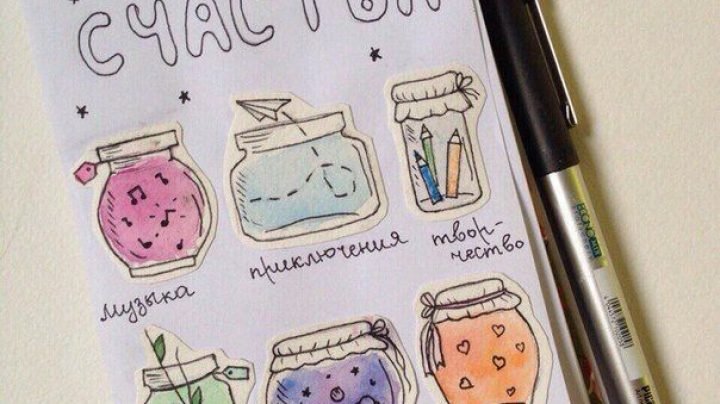 СЧАСТЬЯ
музыка
приключения
твор-
чество